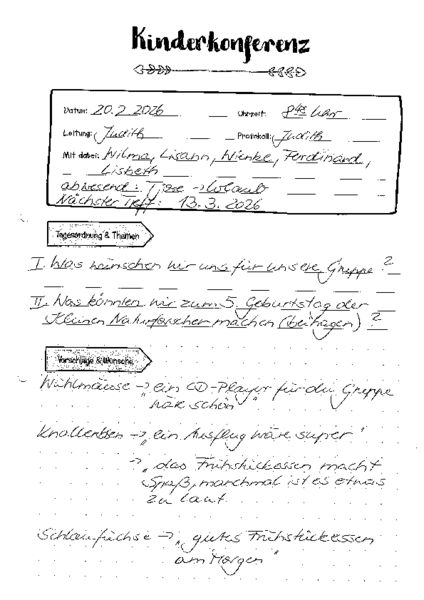 Kinderkonferenz
Datum: 20.2.2026 Uhrzeit: 8:45 Uhr
Leitung: Judith Protokoll: Judith
Mit dabei: Wilma, Lisann, Wienke, Ferdinand,
Lisbeth
abwesend: -> Urlaub
Nächster Treff: 13.3.2026
Tagesordnung & Themen
I. Was wünschen wir uns für unsere Gruppe?
II. Was könnten wir zum 5. Geburtstag der
Kleinen Naturforscher machen (beitragen)?
Vorschläge & Wünsche
Wühlmäuse -> „ein CD-Player für die Gruppe
wäre schön"
Knallerbsen -> „ein Ausflug wäre super"
-> „das Frühstückessen macht
Spaß, manchmal ist es etwas
zu laut
Schlaufüchse -> „gutes Frühstückessen
am Morgen"